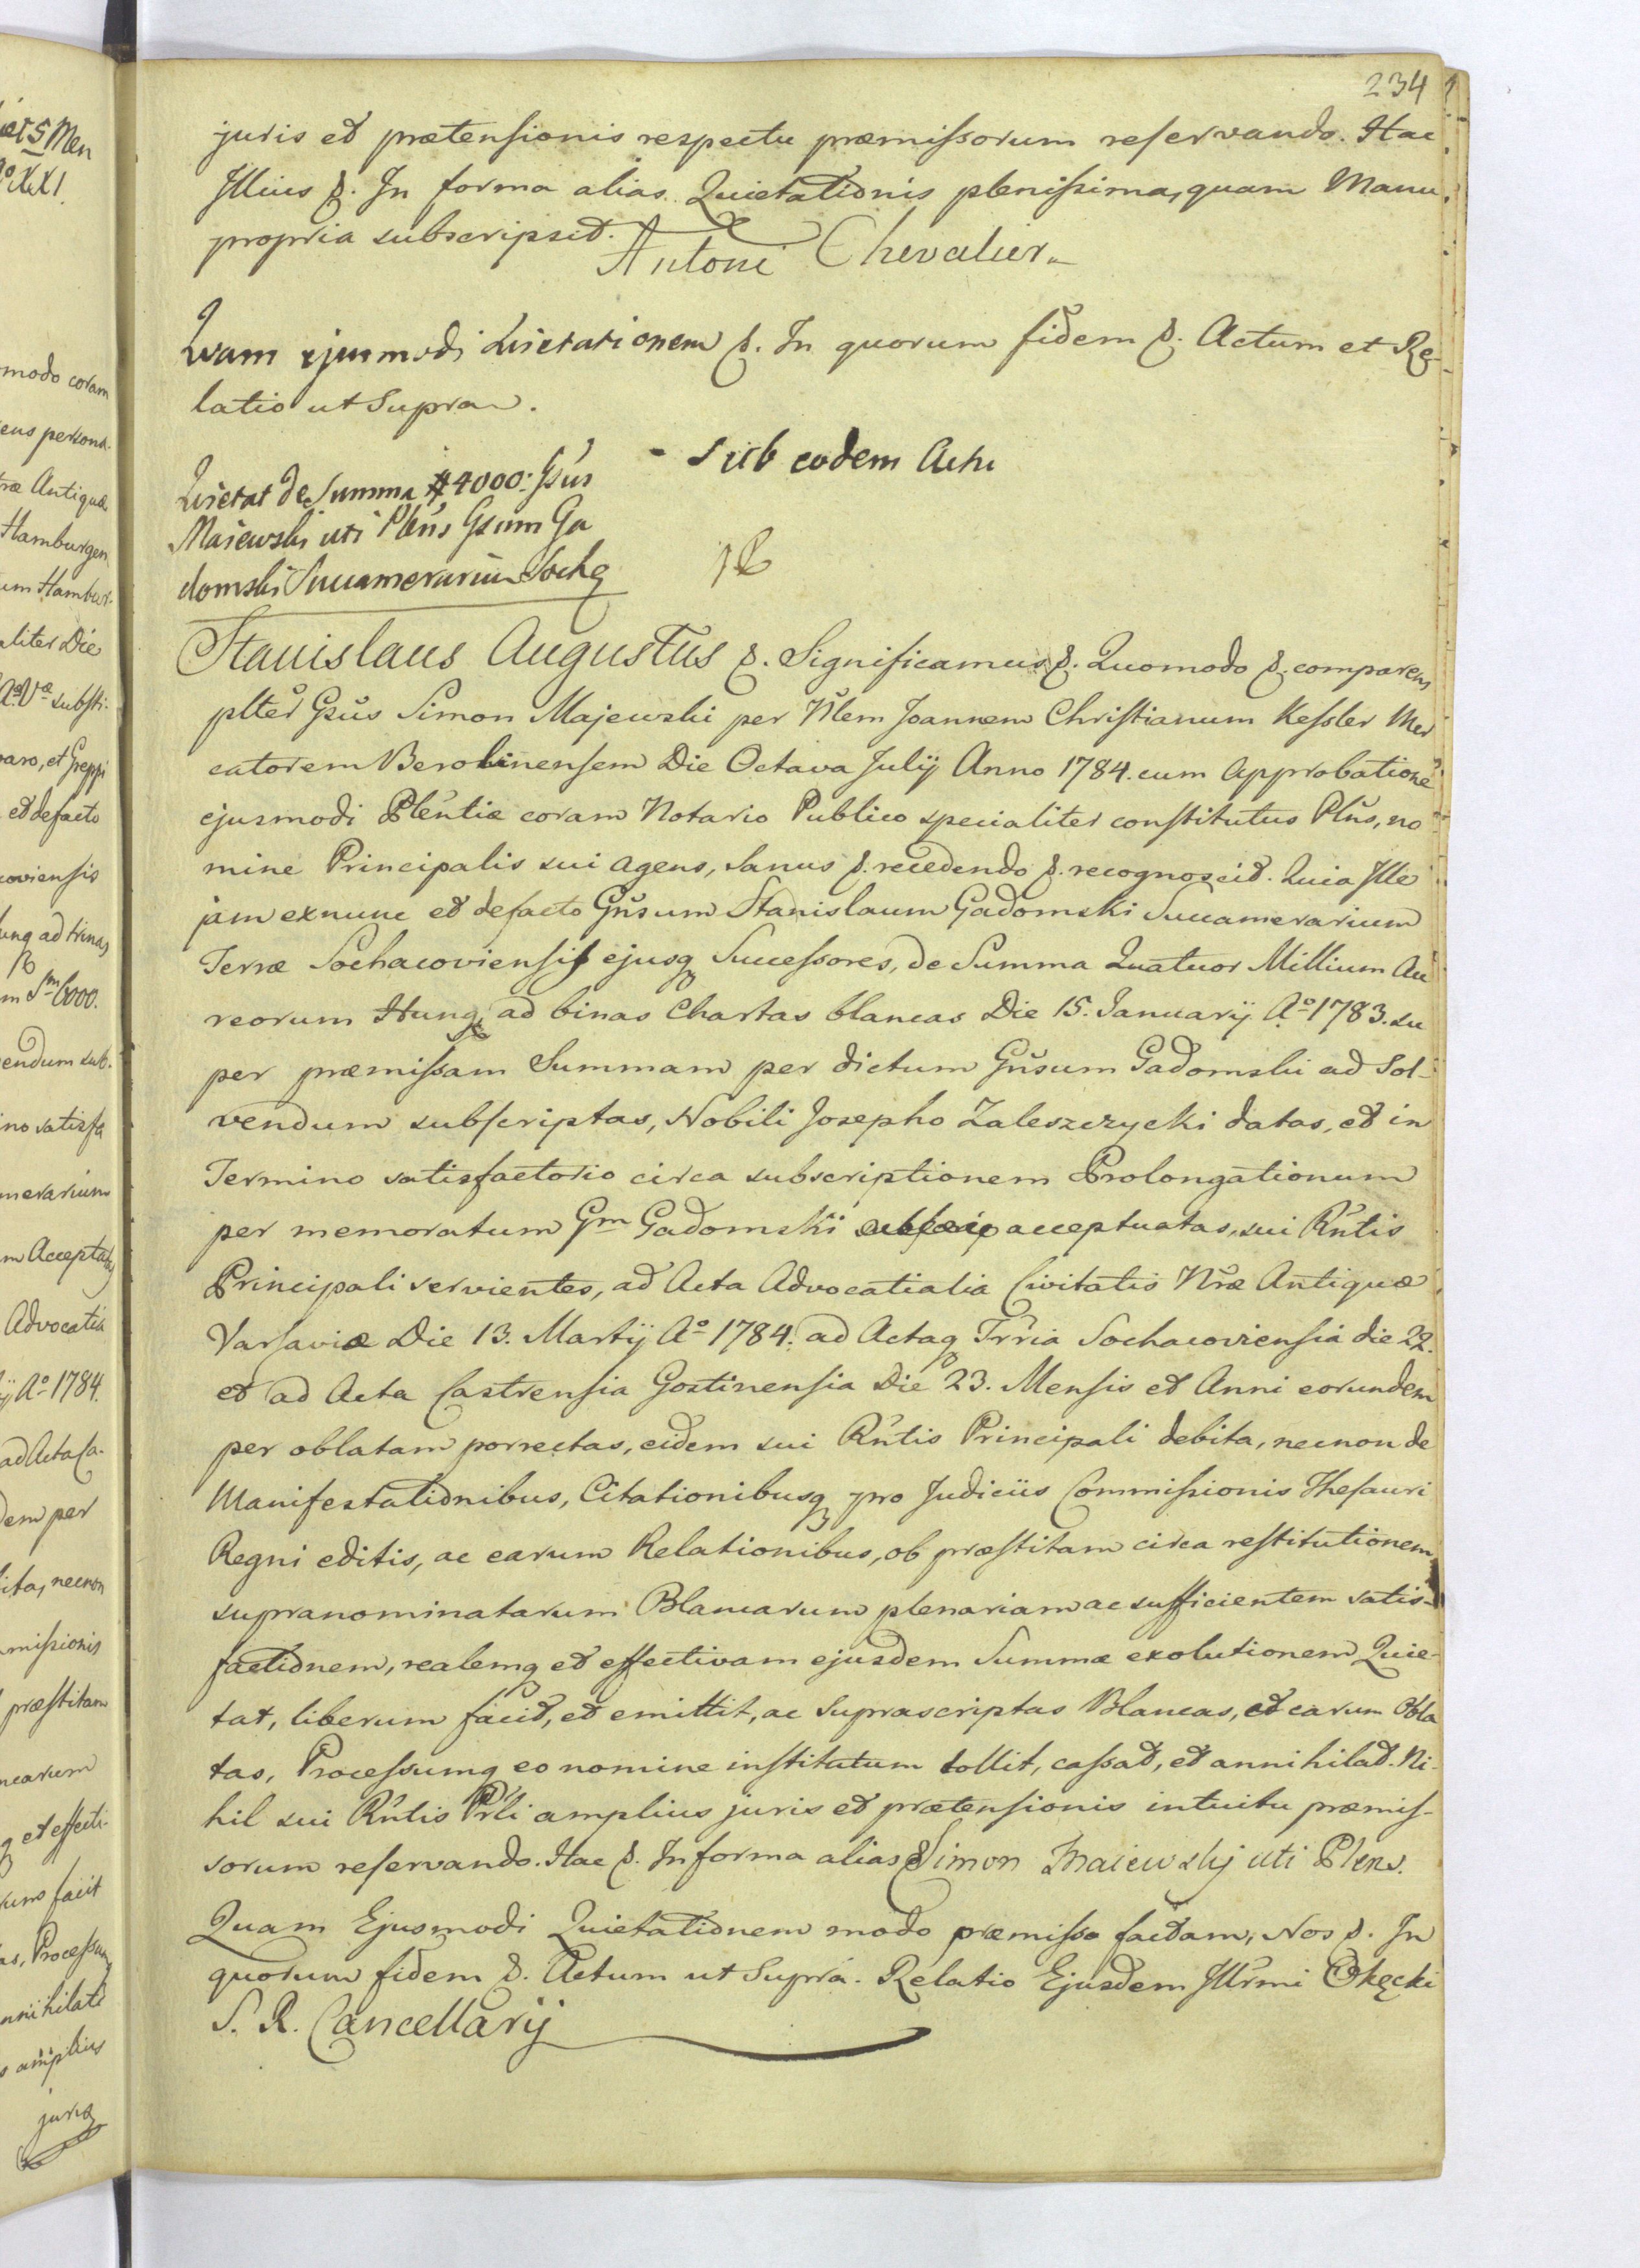 234
juris et prætensionis respectu præmissorum reservando. Hac
Illius &. In forma alias. Quietationis plenissima, quam Manu
propria subscripsit.
Antoni Chevalier
Quam ejusmodi Quietationem &. In quorum fidem &. Actum et Re-
latio ut Supra.
Sub eodem Actu
Quietat de Summa # 4000. Gsus
Maiewski uti Plens Gsum Ga
domski Succamerarium Soch
Stanislaus Augustus &. Significamus &. Quomodo &. comparens
plter Gsus Simon Majewski per Nblem Joannem Christianum Kessler Mer
catorem Berolinensem Die Octava Julij Anno 1784. cum Approbatione
ejusmodi Plentiæ coram Notario Publico specialiter constitutus Plns, no
mine Principalis sui agens, Sanus &. recedendo &. recognoscit. Quia Ille
jam exnunc et defacto Gnsum Stanislaum Gadomski Succamerarium
Terræ Sochacoviensis ejusq Successores, de Summa Quatuor Millium Au
reorum Hung, ad binas Chartas blancas Die 15. Januarij Ao 1783. su
per præmissam Summam per dictum Gnsum Gadomski ad Sol-
vendum subscriptas, Nobili Josepho Zaleszczycki datas, et in
Termino satisfactorio circa subscriptionem Prolongationum
per memoratum Gm Gadomski acceptuatas, sui Rntis
Principali servientes, ad Acta Advocatialia Civitatis Nræ Antiquæ
Varsaviæ Die 13. Martij Ao 1784. ad Actaq Trria Sochacoviensia die 22.
et ad Acta Castrensia Gostinensia Die 23. Mensis et Anni eorundem
per oblatam porrectas, eidem sui Rntis Principali debita, necnon de
Manifestationibus, Citationibusq pro Judiciis Commissionis Thesauri
Regni editis, ac earum Relationibus, ob præstitam circa restitutionem
supranominatarum Blancarum plenariam ac sufficientem satis-
factionem, realemq et effectivam ejusdem Summæ exolutionem Quie-
tat, liberum facit, et emittit, ac Suprascriptas Blancas, et earum Obla
tas, Processumq eo nomine institutum tollit, cassat, et annihilat. Ni-
hil sui Rntis Prli amplius juris et prætensionis intuitu præmis-
sorum reservando. Hac &. In forma alias &. Simon Maiewskij uti Plens.
Quam Ejusmodi Quietationem modo præmisso factam, Nos &. In
quorum fidem &. Actum ut Supra. Relatio Ejusdem Illrmi Okęcki
S. R. Cancellarij